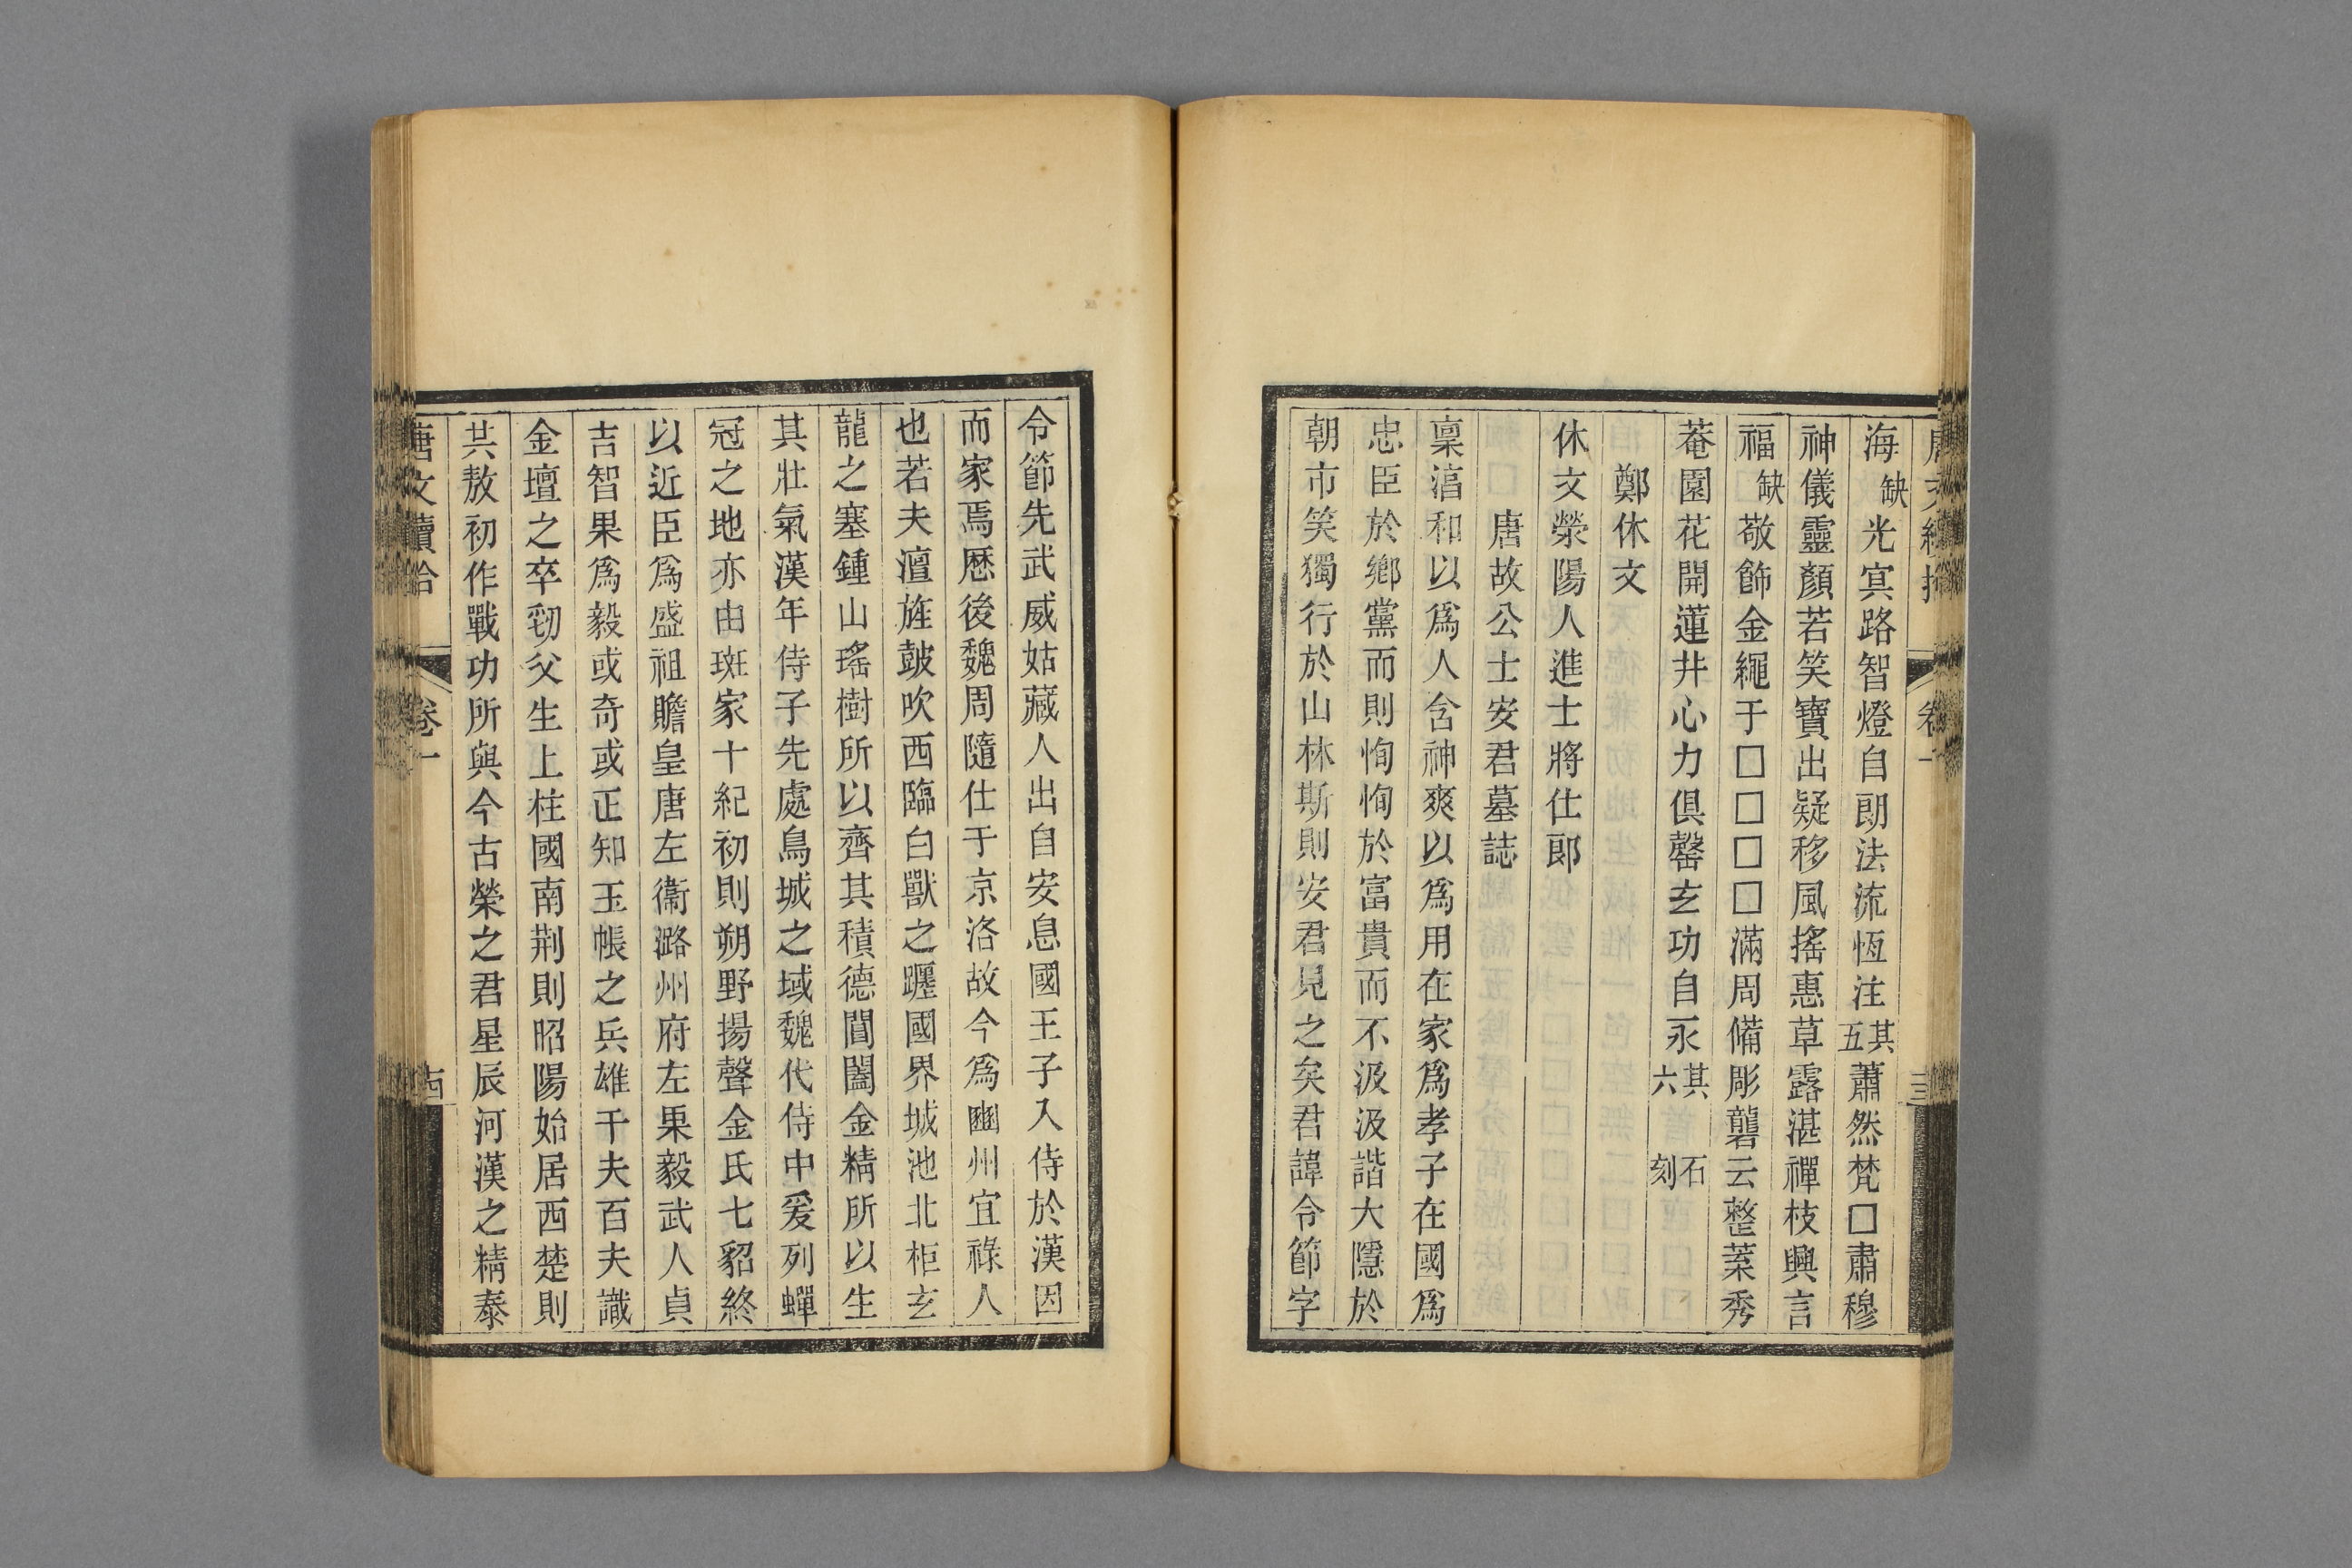 海缺光冥路智燈自朗法流恆注其五蕭然梵□肅穆
神儀靈顏若笑寶出疑移風搖惠草露湛禪枝興言
福缺敬飾金繩于□□□□滿周備彫礱云整蘂秀
菴園花開蓮井心力俱罄玄功自永其六 石刻
鄭休文
休文滎陽人進士將仕郎
唐故公士安君墓誌
稟湻和以爲人含神爽以爲用在家爲孝子在國爲
忠臣於鄉黨而則恂恂於富貴而不汲汲諧大隱於
朝市笑獨行於山林斯則安君見之矣君諱令節字
令節先武威姑藏人出自安息國王子入侍於漢因
而家焉厯後魏周隨仕于京洛故今爲豳州宜祿人
也若夫澶旌鼓吹西臨白獸之躔國界城池北柜玄
龍之塞鍾山瑤樹所以齊其積德閶闔金精所以生
其壯氣漢年侍子先處鳥城之域魏代侍中爰列蟬
冠之地亦由班家十紀初則朔野揚聲金氏七貂終
以近臣爲盛祖瞻皇唐左衞潞州府左果毅武人貞
吉智果爲毅或奇或正知玉帳之兵雄千夫百夫識
金壇之卒勁父生上柱國南荆則昭陽始居西楚則
共敖初作戰功所與今古榮之君星辰河漢之精泰
唐文續拾 卷一